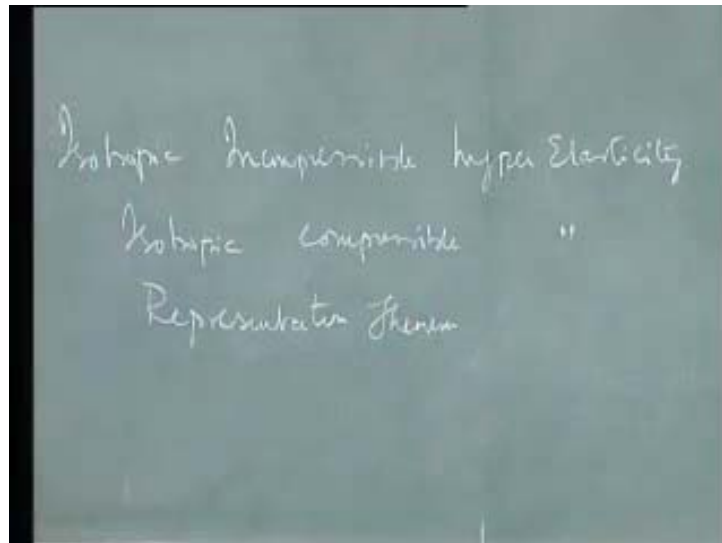 Isotropic Incompressible hyper Elasticity
Isotropic compressible "
Representation Theorem